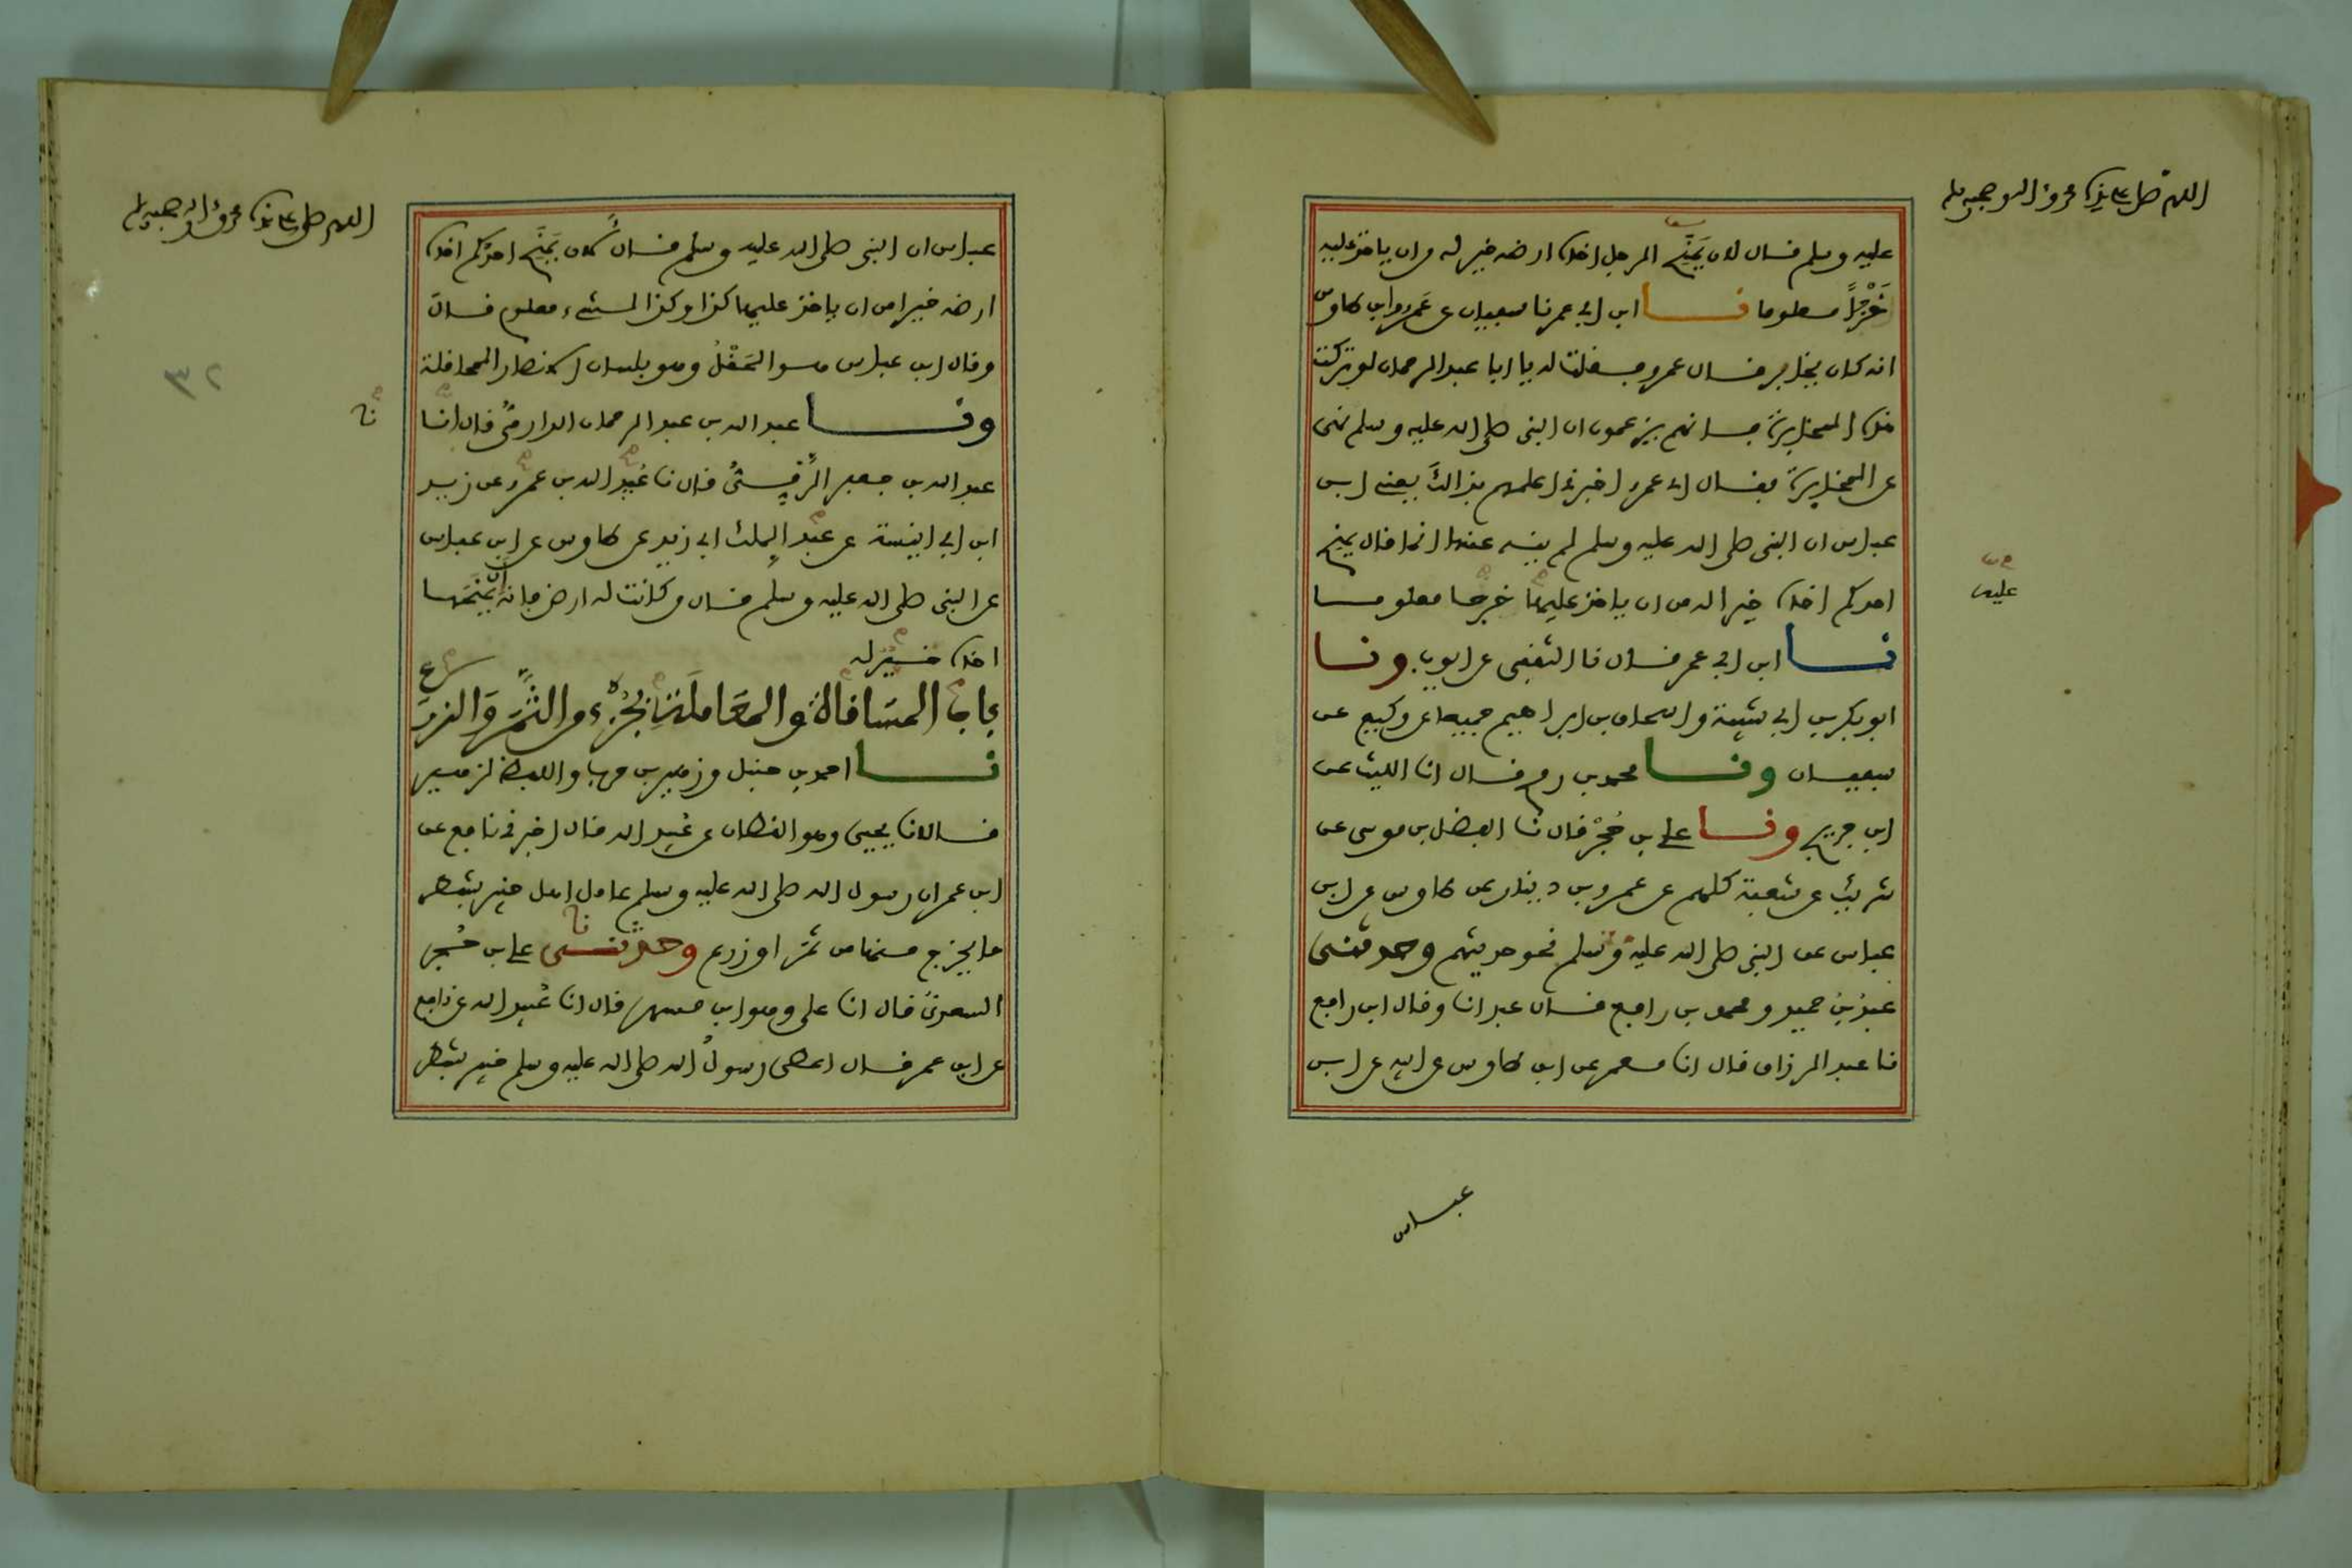 اللهم صل على سيدنا محمد وآله وصحبه وسلم
عليه وسلم قال لان يمنح الرجل اخاه ارضه خير له من ان ياخذ عليه
خرجا معلوما نا ابن ابي عمر نا سفيان عن عمرو وابن طاوس
انه كان يخابر قال عمرو فقلت له يا ابا عبد الرحمان لو تركت
هذه المخابرة فانهم يزعمون ان النبي صلى الله عليه وسلم نهى
عن المخابرة فقال اي عمرو اخبرني اعلمهم بذالك يعني ابن
عباس ان النبي صلى الله عليه وسلم لم ينه عنها انما قال يمنح
احدكم اخاه خير له من ان ياخذ عليها خرجا معلوما
عليه
نا ابن ابي عمر قال نا الثقفي عن ايوب ونا
ابو بكر بن ابي شيبة واسحاق بن ابراهيم جميعا عن وكيع عن
سفيان ونا محمد بن رمح قال انا الليث عن
ابن جريج ونا علي بن حجر قال نا الفضل بن موسى عن
شريك عن شعبة كلهم عن عمرو بن دينار عن طاوس عن ابن
عباس عن النبي صلى الله عليه وسلم نحو حديثهم وحدثني
عبد بن حميد ومحمد بن رافع قال عبد انا وقال ابن رافع
نا عبد الرزاق قال انا معمر عن ابن طاوس عن ابيه عن ابن
عباس
اللهم صل على سيدنا محمد وآله وصحبه وسلم
عباس ان النبي صلى الله عليه وسلم قال لان يمنح احدكم اخاه
ارضه خير له من ان ياخذ عليها كذا وكذا لشيء معلوم قال
وقال ابن عباس هو الحقل وهو بلسان الانصار المحاقلة
ونا عبد الله بن عبد الرحمان الدارمي قال انا
نا
٣٢
عبد الله بن جعفر الرقي قال نا عبيد الله بن عمرو عن زيد
ابن ابي انيسة عن عبد الملك ابي زيد عن طاوس عن ابن عباس
عن النبي صلى الله عليه وسلم قال من كانت له ارض فانه ان يمنحها
اخاه خير له
باب المساقاة والمعاملة بجزء من الثمر والزرع
نا احمد بن حنبل وزهير بن حرب واللفظ لزهير
قالا نا يحيى وهو القطان عن عبيد الله قال اخبرني نافع عن
ابن عمر ان رسول الله صلى الله عليه وسلم عامل اهل خيبر بشطر
ما يخرج منها من ثمر او زرع وحدثني علي بن حجر
نا
السعدي قال انا علي وهو ابن مسهر قال انا عبيد الله عن نافع
عن ابن عمر قال اعطى رسول الله صلى الله عليه وسلم خيبر بشطر